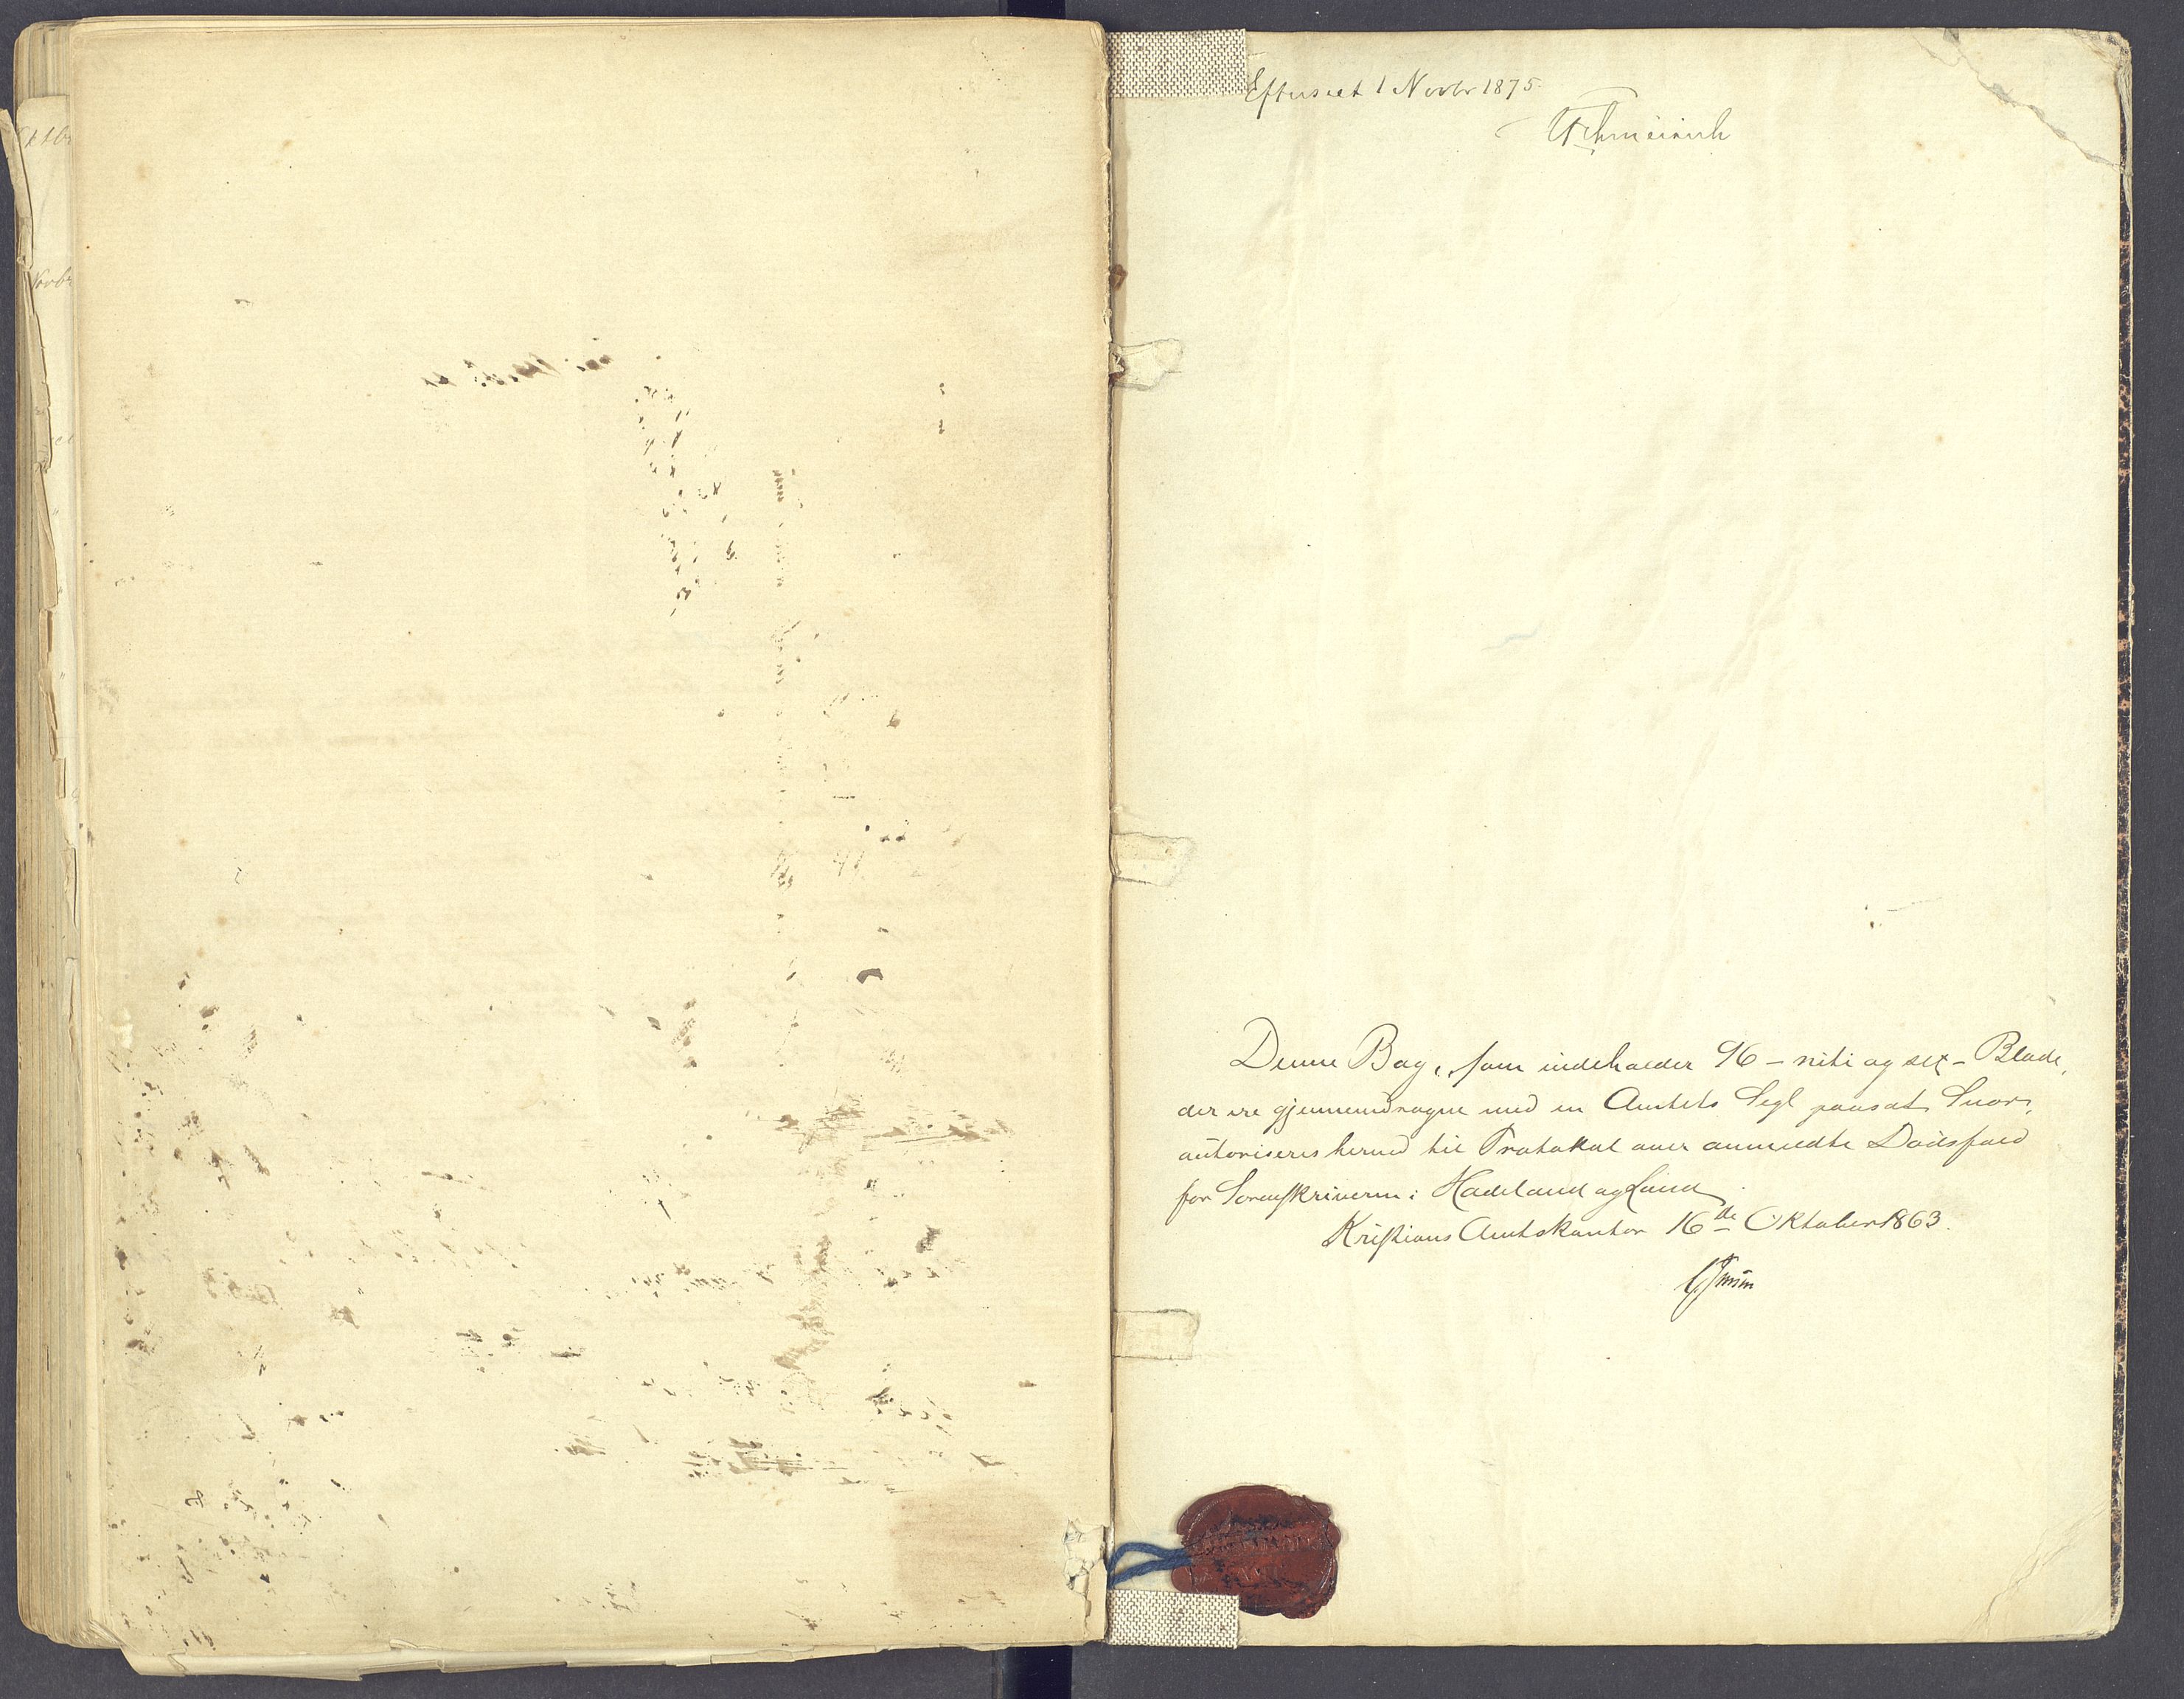 Efterseet 1 Novbr 1875.
Denne Bog, som indeholder 96 – niti og sex – Blade,
der ere gjennemdragne med en Amtets Segl paasat Snor,
autoriseres herved til Protokol over anmeldte Dødsfald
for Sorenskriveren i Hadeland og Land.
Kristians Amtskontor 16de Oktober 1863.